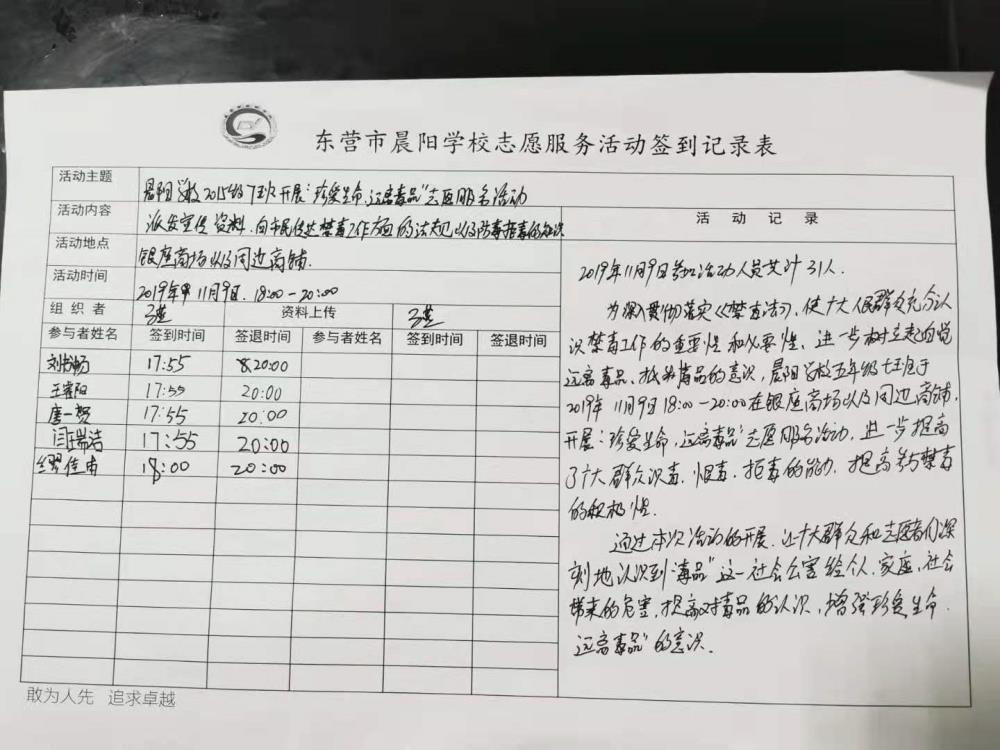 东营市晨阳学校志愿服务活动签到记录表
活动主题 晨阳学校2015级7班开展“珍爱生命、远离毒品”志愿服务活动
活动内容 派发宣传资料、向市民传达禁毒工作方面的法规以及防毒拒毒的知识
活动地点 银座商场以及周边商铺.
活动时间 2019年11月9日. 18:00-20:00
组织者 资料上传
参与者姓名 签到时间 签退时间 参与者姓名 签到时间 签退时间
刘书畅 17:55 20:00
王睿阳 17:55 20:00
唐一贺 17:55 20:00
闫瑞洁 17:55 20:00
佳甫 18:00 20:00
活动记录
2019年11月9日参加活动人员共计31人.
为深入贯彻落实《禁毒法》, 使广大人民群众充分认
识禁毒工作的重要性和必要性、进一步树立起自觉
远离毒品、抵制毒品的意识, 晨阳学校五年级七班于
2019年11月9日18:00-20:00在银座商场以及周边商铺,
开展“珍爱生命、远离毒品”志愿服务活动、进一步提高
了广大群众识毒、恨毒、拒毒的能力、提高参与禁毒
的积极性.
通过本次活动的开展、让广大群众和志愿者们深
刻地认识到“毒品”这一社会公害给个人、家庭、社会
带来的危害, 提高对毒品的认识, 增强珍爱生命、
远离毒品”的意识.
敢为人先 追求卓越